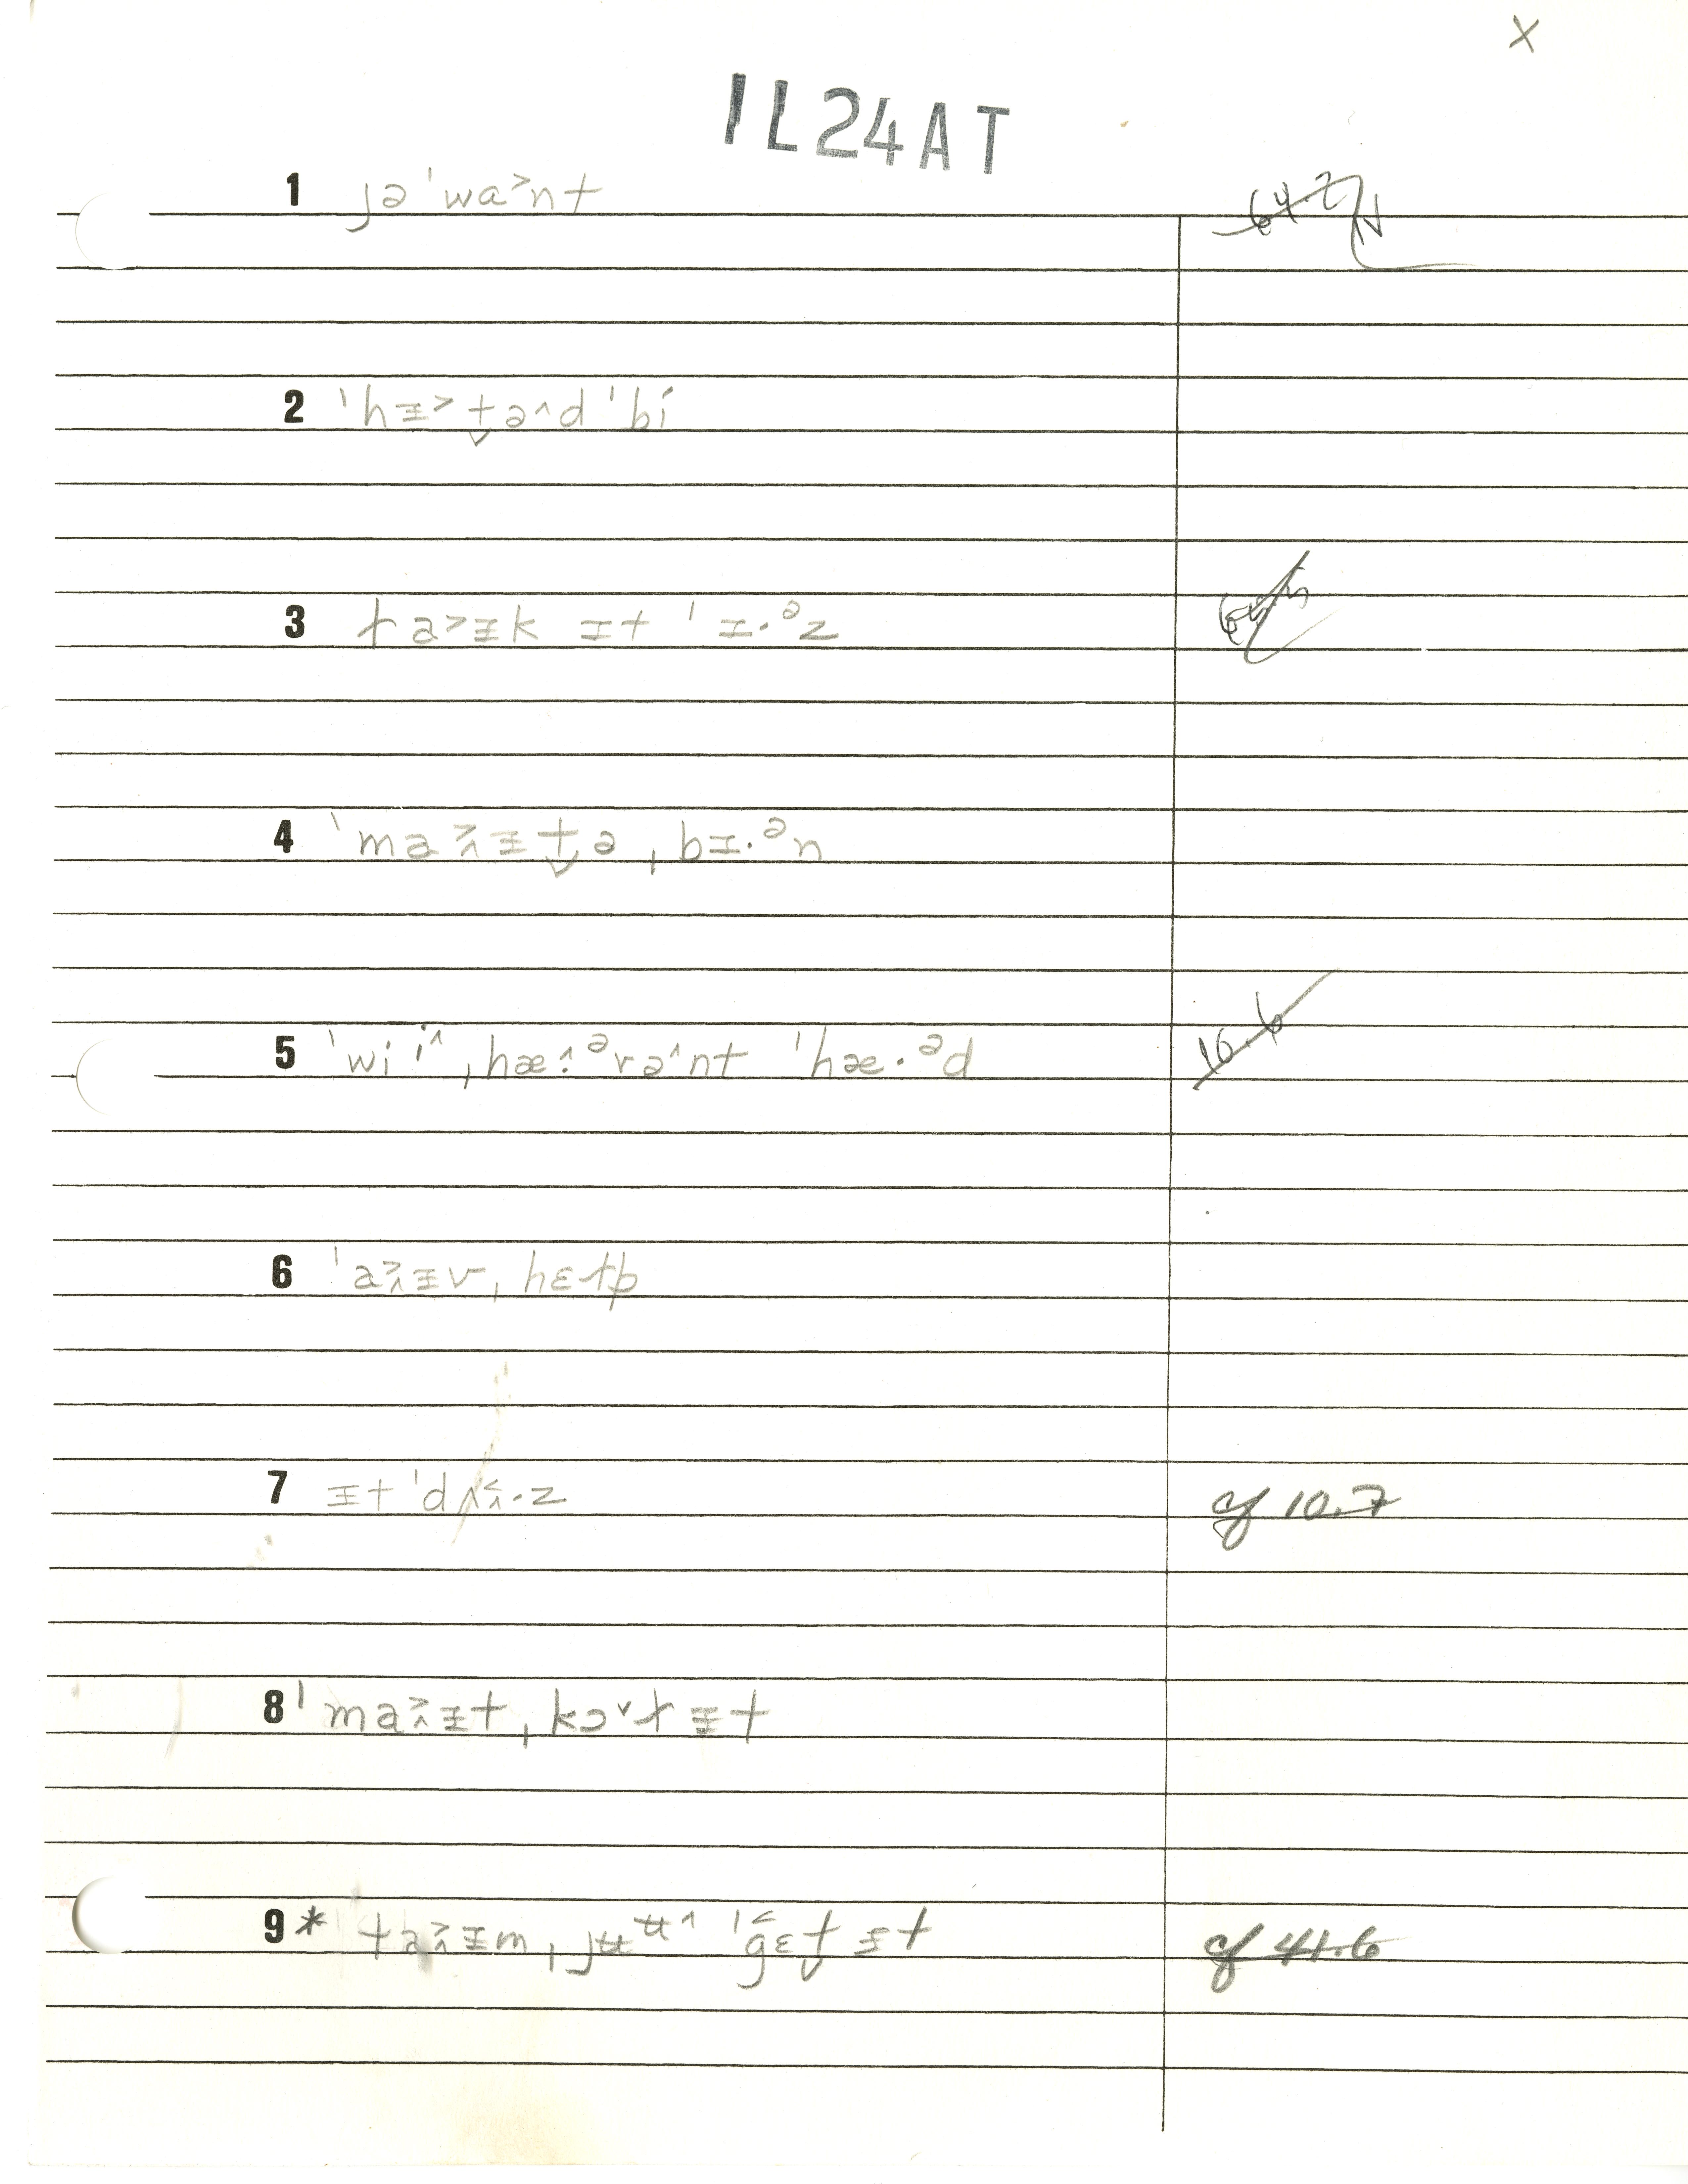 X
1L24AT
1 jə ˈwa˃nt
2 ˈhɪ̵˃t̬ə˄d ˈbi
3 ɫa˃ɪ̵k ɪt ˈɪ·ᵊz
4 ˈma˃˄ɪ̵t̬ə ˌbɪ·ᵊn
5 ˈwiⁱ˄ ˌhæ˄·ᵊrə˄nt ˈhæ·ᵊd 16.6
6 ˈa˃˄ɪ̵v ˌhɛɫp
7 ɪ̵t ˈdʌ˂˄·z cf 10.7
8 ˈma˃˄ɪ̵t ˌkɔ˅ɫ ɪ̵t
9 * ta˃˄ɪ̵m ˌjʉᵘ̵˄ ˈg˂ɛt̬ ɪ̵t cf 41.6